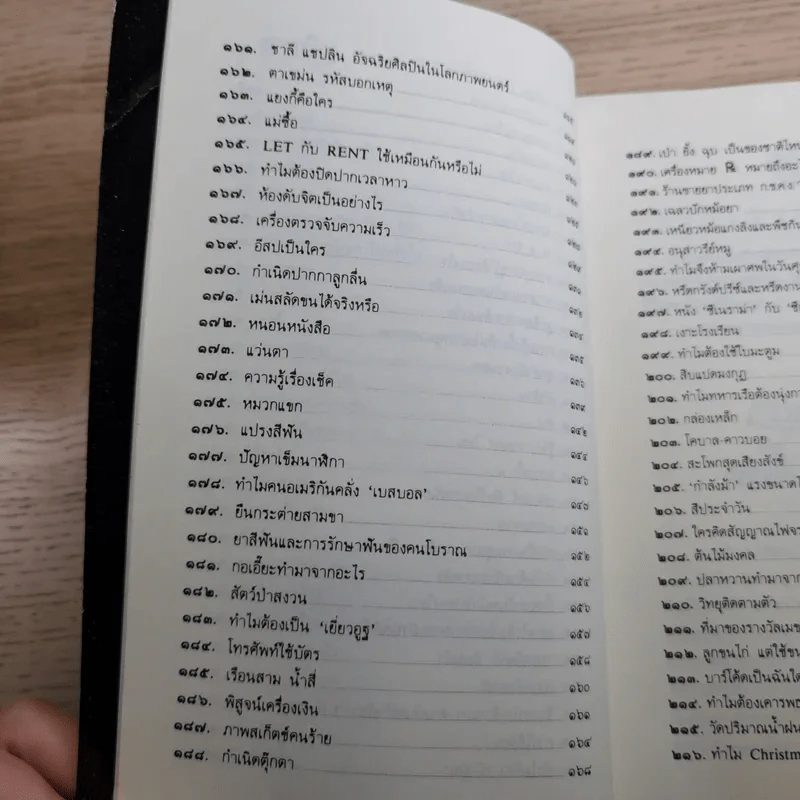 ๑๖๑. ชาลี แชปลิน อัจฉริยศิลปินในโลกภาพยนตร์
๑๖๒. ตาเขม่น รหัสบอกเหตุ
๑๖๓. แยงกี้คือใคร
๑๖๔. แม่ซื้อ
๑๖๕. LET กับ RENT ใช้เหมือนกันหรือไม่
๑๖๖. ทำไมต้องปิดปากเวลาหาว
๑๖๗. ห้องดับจิตเป็นอย่างไร
๑๖๘. เครื่องตรวจจับความเร็ว
๑๖๙. อีสปเป็นใคร
๑๗๐. กำเนิดปากกาลูกลื่น ๑๓๑
๑๗๑. เม่นสลัดขนได้จริงหรือ
๑๗๒. หนอนหนังสือ ๑๓๔
๑๗๓. แว่นตา ๑๓๕
๑๗๔. ความรู้เรื่องเช็ค ๑๓๖
๑๗๕. หมวกแขก ๑๓๙
๑๗๖. แปรงสีฟัน ๑๔๒
๑๗๗. ปัญหาเข็มนาฬิกา
๑๗๘. ทำไมคนอเมริกันคลั่ง ‘เบสบอล’
๑๗๙. ยืนกระต่ายสามขา ๑๕๑
๑๘๐. ยาสีฟันและการรักษาฟันของคนโบราณ ๑๕๒
๑๘๑. กอเอี๊ยะทำมาจากอะไร ๑๕๔
๑๘๒. สัตว์ป่าสงวน ๑๕๖
๑๘๓. ทำไมต้องเป็น ‘เยี่ยวอูฐ’ ๑๕๗
๑๘๔. โทรศัพท์ใช้บัตร ๑๕๘
๑๘๕. เรือนสาม น้ำสี่ ๑๖๐
๑๘๖. พิสูจน์เครื่องเงิน ๑๖๑
๑๘๗. ภาพสเก็ตช์คนร้าย ๑๖๔
๑๘๘. กำเนิดตุ๊กตา ๑๖๘
๑๘๙. เปา อั้ง ฉุบ เป็นของชาติไหน
๑๙๐. เครื่องหมาย ℞ หมายถึงอะ
๑๙๑. ร้านขายยาประเภท
๑๙๒. เฉลวปักหม้อยา
๑๙๓. เหนียวหม้อแกงลิงและพืชกิน
๑๙๔. อนุสาวรีย์หมู
๑๙๕. ทำไมจึงห้ามเผาศพในวันศุ
๑๙๖. หรีดกรังด์ปรีซ์และหรีดงาน
๑๙๗. หนัง ‘ซีเนราม่า’ กับ
๑๙๘. เงาะโรงเรียน
๑๙๙. ทำไมต้องใช้ใบมะตูม
๒๐๐. สิบแปดมงกุฎ
๒๐๑. ทำไมทหารเรือต้องนุ่งกา
๒๐๒. กล่องเหล็ก
๒๐๓. โคบาล-คาวบอย
๒๐๔. สะโพกสุดเสียงสังข์
๒๐๕. ‘กำลังม้า’ แรงขนาดไ
๒๐๖. สีประจำวัน
๒๐๗. ใครคิดสัญญาณไฟจร
๒๐๘. ต้นไม้มงคล
๒๐๙. ปลาหวานทำมาจาก
๒๑๐. วิทยุติดตามตัว
๒๑๑. ที่มาของรางวัลเมข
๒๑๒. ลูกขนไก่ แต่ใช้ขน
๒๑๓. บาร์โค้ดเป็นฉันใด
๒๑๔. ทำไมต้องเคารพธ
๒๑๕. วัดปริมาณน้ำฝน
๒๑๖. ทำไม Christm